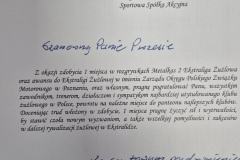 Sportowa Spółka Akcyjna
Szanowny Panie Prezesie
Z okazji zdobycia 1 miejsca w rozgrywkach Metalkas 2 Ekstraliga Żużlowa
oraz awansu do Ekstraligi Żużlowej w imieniu Zarządu Okręgu Polskiego Związku
Motorowego w Poznaniu, oraz własnym, pragnę pogratulować Panu, wszystkim
zawodnikom, trenerom, działaczom i sympatykom najbardziej utytułowanego klubu
żużlowego w Polsce, powrotu na należne miejsce do panteonu najlepszych klubów.
Doceniając trud włożony w zdobycie, 1 miejsca pragnę życzyć sił i wytrwałości,
by stanęli czoła nowym wyzwaniom, a także wszelkiej pomyślności i sukcesów
w dalszej rywalizacji żużlowej w Ekstralidze.